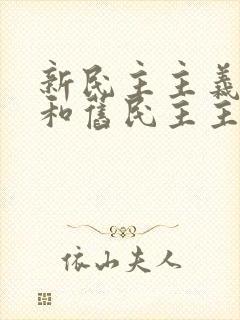 新民主主義
和舊民主主
依山夫人